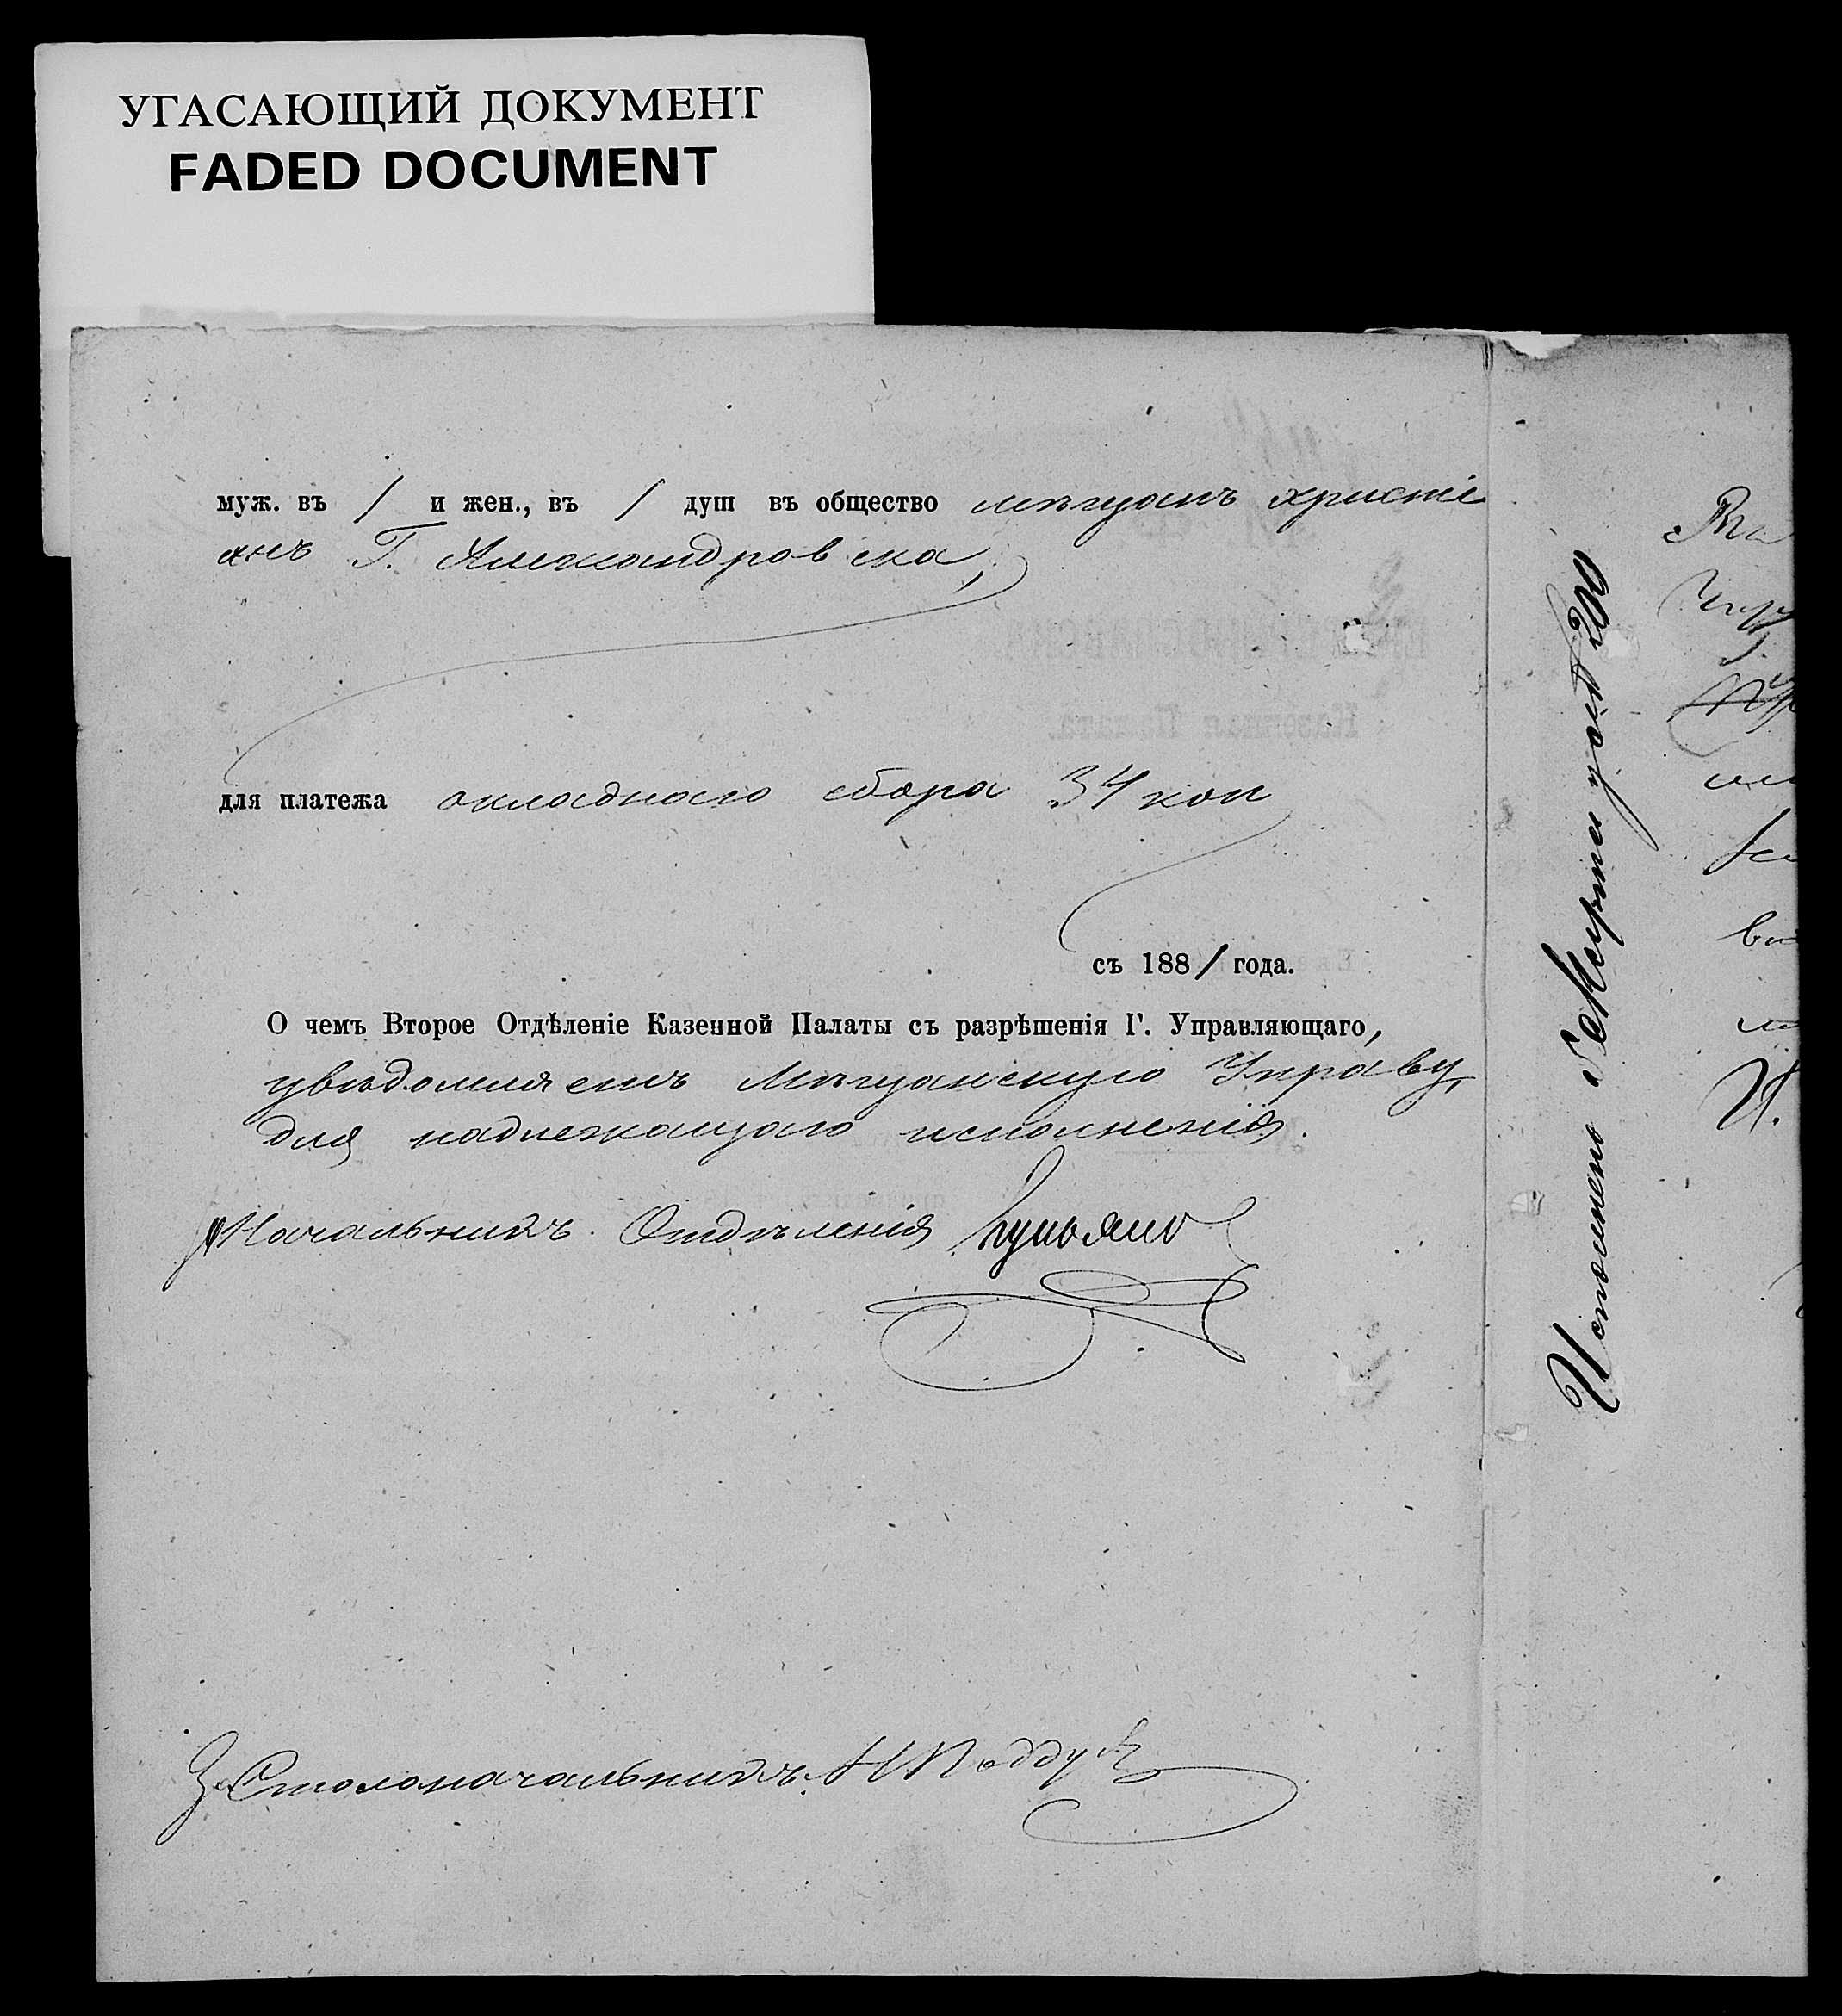 УГАСАЮЩИЙ ДОКУМЕНТ
FADED DOCUMENT
муж. въ 1 и жен., въ 1 душ въ общество мѣщанъ христі
анъ Г. Александровска,
для платежа окладнаго сбора 34 коп
съ 1881 года.
О чемъ Второе Отдѣленіе Казенной Палаты съ разрѣшенія Г. Управляющаго,
увѣдомляетъ Мѣщанскую Управу,
для надлежащаго исполненія.
Начальникъ Отдѣленія
За Столоначальникъ
Исполнено 5 Марта